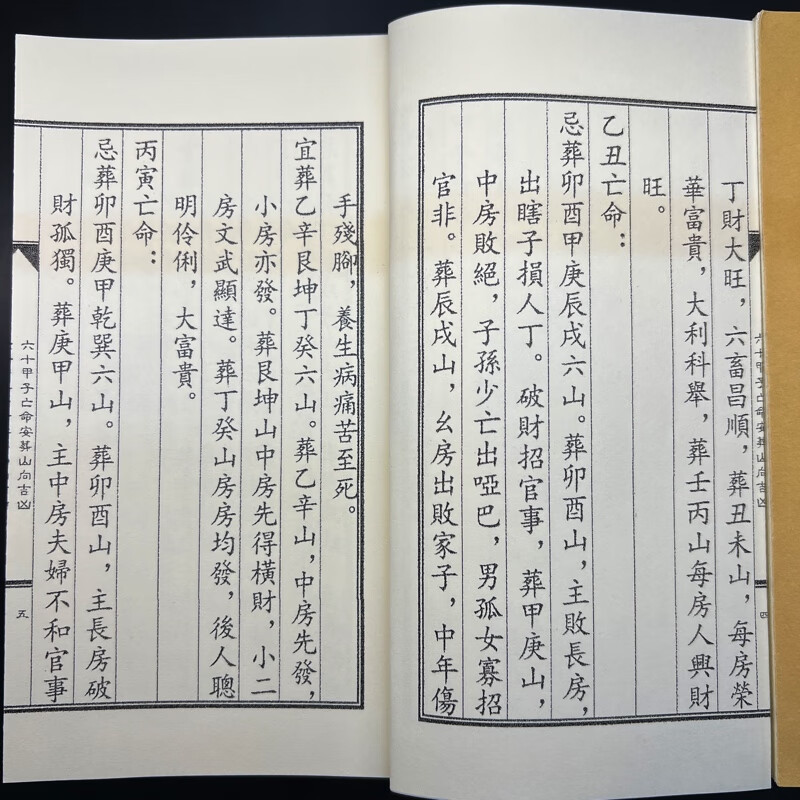 丁財大旺，六畜昌順，葬丑未山，每房榮
華富貴，大利科舉，葬壬丙山每房人興財
旺。
乙丑亡命：
忌葬卯酉甲庚辰戌六山。葬卯酉山，主敗長房，
出瞎子損人丁。破財招官事，葬甲庚山，
中房敗絕，子孫少亡出啞巴，男孤女寡招
官非。葬辰戌山，幺房出敗家子，中年傷
六十甲子亡命安葬山向吉凶
四
手殘腳，養生病痛苦至死。
宜葬乙辛艮坤丁癸六山。葬乙辛山，中房先發，
小房亦發。葬艮坤山中房先得橫財，小二
房文武顯達。葬丁癸山房房均發，後人聰
明伶俐，大富貴。
丙寅亡命：
忌葬卯酉庚甲乾巽六山。葬卯酉山，主長房破
財孤獨。葬庚甲山，主中房夫婦不和官事
六十甲子亡命安葬山向吉凶
五